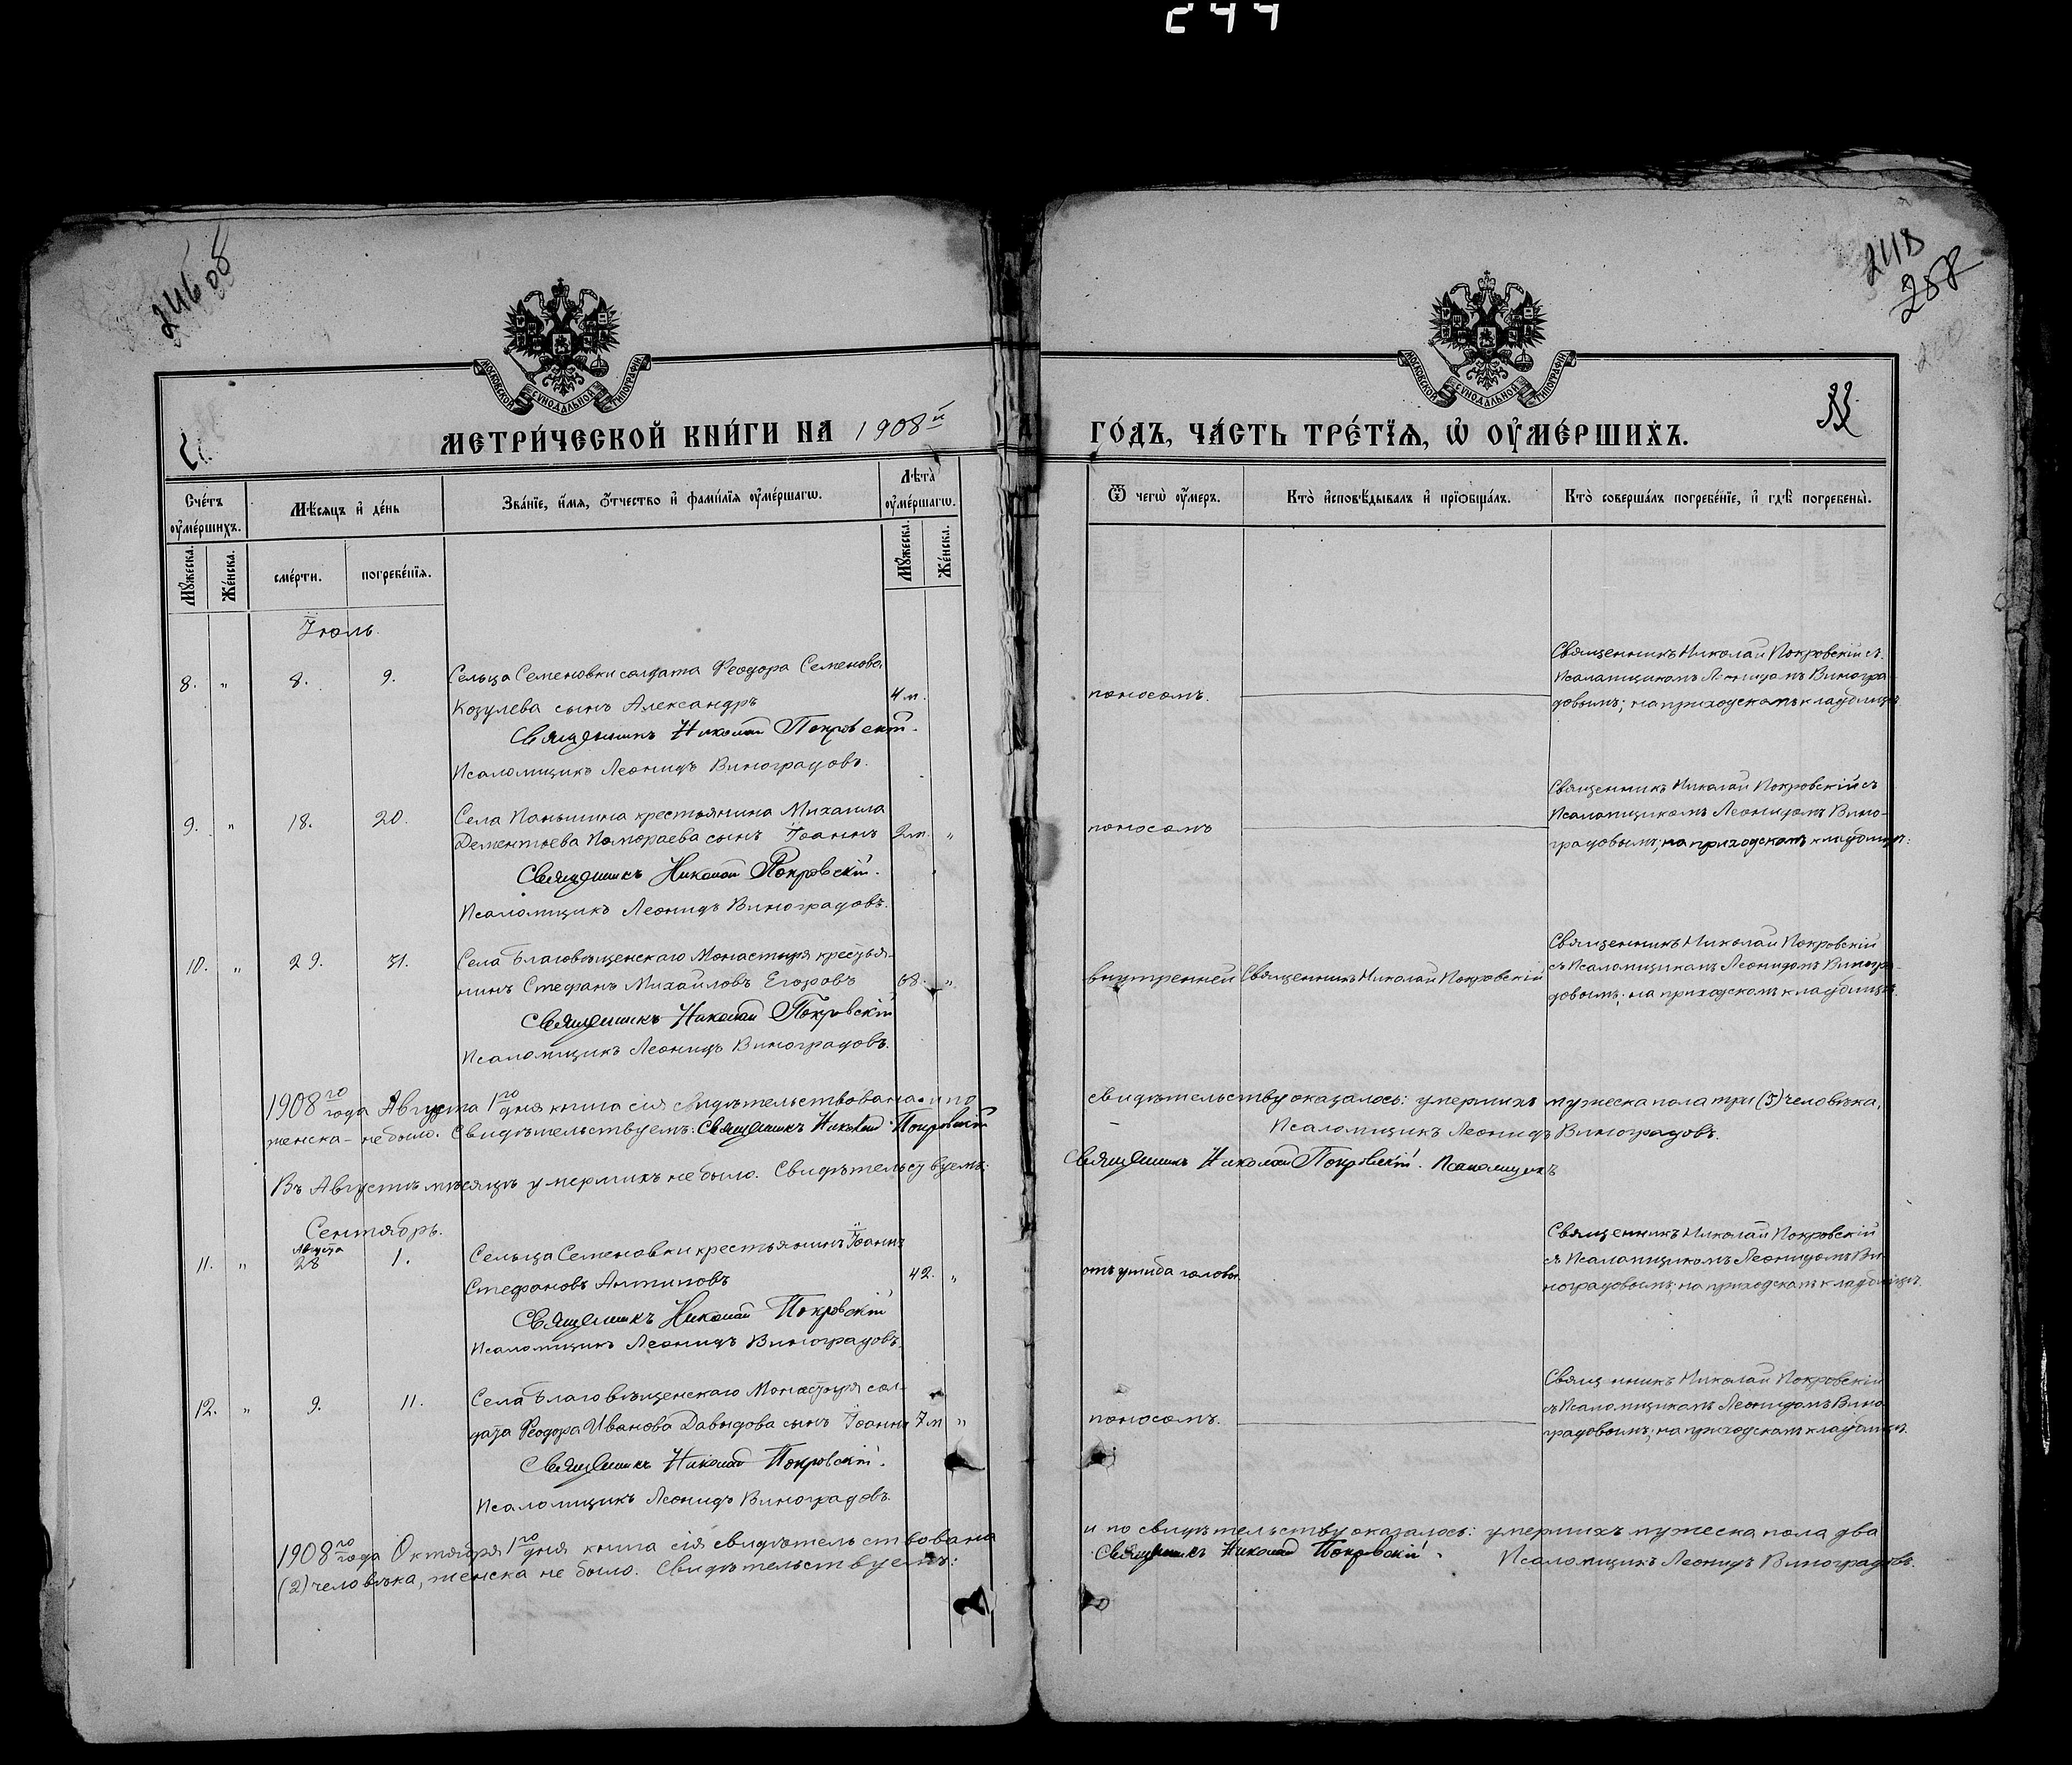 244
246 об
248
287
МОСКОВСКОЙ СѴНОДАЛЬНОЙ ТИПОГРАФІИ
МОСКОВСКОЙ СѴНОДАЛЬНОЙ ТИПОГРАФІИ
МЕТРИ́ЧЕСКОЙ КНИ́ГИ НА 1908й
ГО́ДЪ, ЧА́СТЬ ТРЕ́ТЇѦ, Ѡ҆ ОУ҆МЕ́РШИХЪ.
Сче́тъ оу҆ме́ршихъ.
Мѣ́сяцъ и҆ де́нь
Зва́нїе, и҆́мя, ѻ҆́тчество и҆ фами́лїя оу҆ме́ршагѡ.
Лѣ́та̀ оу҆ме́ршагѡ.
Ѿ чегѡ̀ оу҆́меръ.
Кто̀ и҆сповѣ́дывалъ и҆ прїѡбща́лъ.
Кто̀ соверша́лъ погребе́нїе, и҆ гдѣ̀ погребены̀.
Мꙋ́жеска.
Же́нска.
сме́рти.
погребе́нїя.
Мꙋ́жеска.
Же́нска.
Іюль.
8. „ 8. 9.
Сельца Семеновки солдата Ѳеодора Семенова
Козулева сынъ Александръ
4 м.
Священникъ Николай Покровскій.
Псаломщикъ Леонидъ Виноградовъ.
поносомъ.
Священникъ Николай Покровскій съ
Псаломщикомъ Леонидомъ Виногра
довымъ; на приходскомъ кладбищѣ
9. „ 18. 20.
Села Паньшина крестьянина Михаила
Дементьева Помораева сынъ Іоаннъ
2 м. „
Священникъ Николай Покровскій.
Псаломщикъ Леонидъ Виноградовъ.
поносомъ
Священникъ Николай Покровскій съ
Псаломщикомъ Леонидомъ Вино-
градовымъ; на приходскомъ кладбищѣ.
10. „ 29. 31.
Села Благовѣщенскаго Монастыря крестья-
нинъ Стефанъ Михайловъ Егоровъ
68. „
Священникъ Николай Покровскій
Псаломщикъ Леонидъ Виноградовъ.
внутренней
Священникъ Николай Покровскій
Священникъ Николай Покровскій
съ Псаломщикомъ Леонидомъ Виногра-
довымъ; на приходскомъ кладбищѣ.
1908го года Августа 1го дня книга сія свидѣтельствована и по
свидѣтельству оказалось: умершихъ мужеска пола три (3) человѣка,
женска – не было. Свидѣтельствуемъ: Священникъ Николай Покровскій
Псаломщикъ Леонидъ Виноградовъ.
Въ Августѣ мѣсяцѣ умершихъ не было. Свидѣтельствуемъ:
Священникъ Николай Покровскій. Псаломщикъ
Сентябрь.
Августа
11. „ 28 1.
Сельца Семеновки крестьянинъ Іоаннъ
Стефановъ Антиповъ
42. „
Священникъ Николай Покровскій
Псаломщикъ Леонидъ Виноградовъ.
отъ ушиба головы.
Священникъ Николай Покровскій
съ Псаломщикомъ Леонидомъ Ви-
ноградовымъ; на приходскомъ кладбищѣ.
12. „ 9. 11.
Села Благовѣщенскаго Монастыря сол-
дата Ѳеодора Иванова Давыдова сынъ Іоаннъ
7 м „
Священникъ Николай Покровскій.
Псаломщикъ Леонидъ Виноградовъ.
поносомъ.
Священникъ Николай Покровскій
съ Псаломщикомъ Леонидомъ Вино
градовымъ; на приходскомъ кладбищѣ.
1908го года Октября 1го дня книга сія свидѣтельствована
и по свидѣтельству оказалось: умершихъ мужеска пола два
(2) человѣка, женска не было. Свидѣтельствуемъ:
Священникъ Николай Покровскій. Псаломщикъ Леонидъ Виноградовъ.